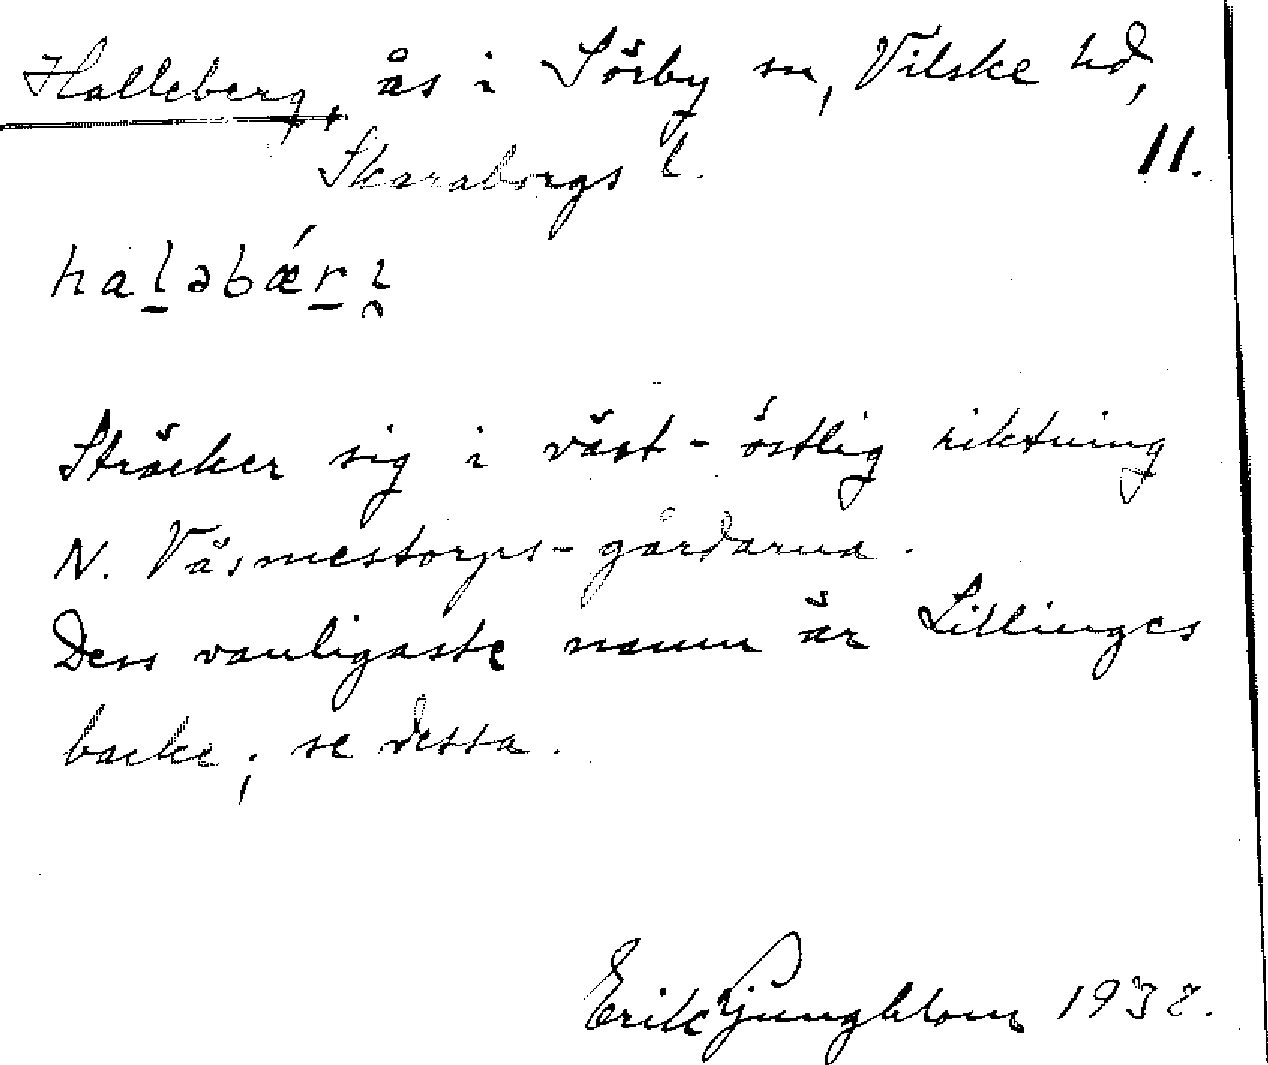 Halleberg, ås i Sörby sn, Vilske hd,
Skaraborgs l. 11.
haləbǽri̯
Sträcker sig i väst-östlig riktning
N. Väsmestorps-gårdarna.
Dess vanligaste namn är Lillinges
backe; se detta.
Erik Ljungblom 1932.